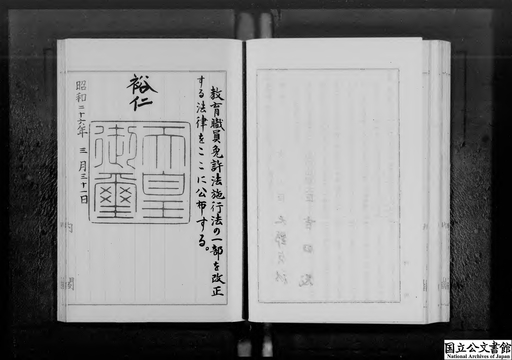 教育職員免許法施行法の一部を改正
する法律をここに公布する。
裕仁
天皇
御璽
昭和二十六年三月三十一日
内閣
国立公文書館
National Archives of Japan